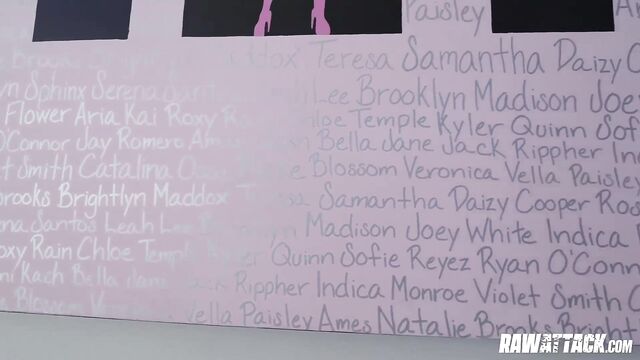 Paisley
Teresa Samantha Daizy C
yn Sphinx Serena Lee Brooklyn Madison Joey
Flower Aria Kai Roxy Temple Kyler Quinn Sofi
O'Connor Jay Romero Bella Jane Jack Rippher In
t Smith Catalina Blossom Veronica Vella Paisley
Brooks Brightlyn Maddox Samantha Daizy Cooper Ros
na Santos Leah Lee Madison Joey White Indica
oxy Rain Chloe Temple Quinn Sofie Reyez Ryan O'Conn
Kach Bella Rippher Indica Monroe Violet Smith C
Blossom Vella Paisley Ames Natalie Brooks Bright
RAWATTACK.COM